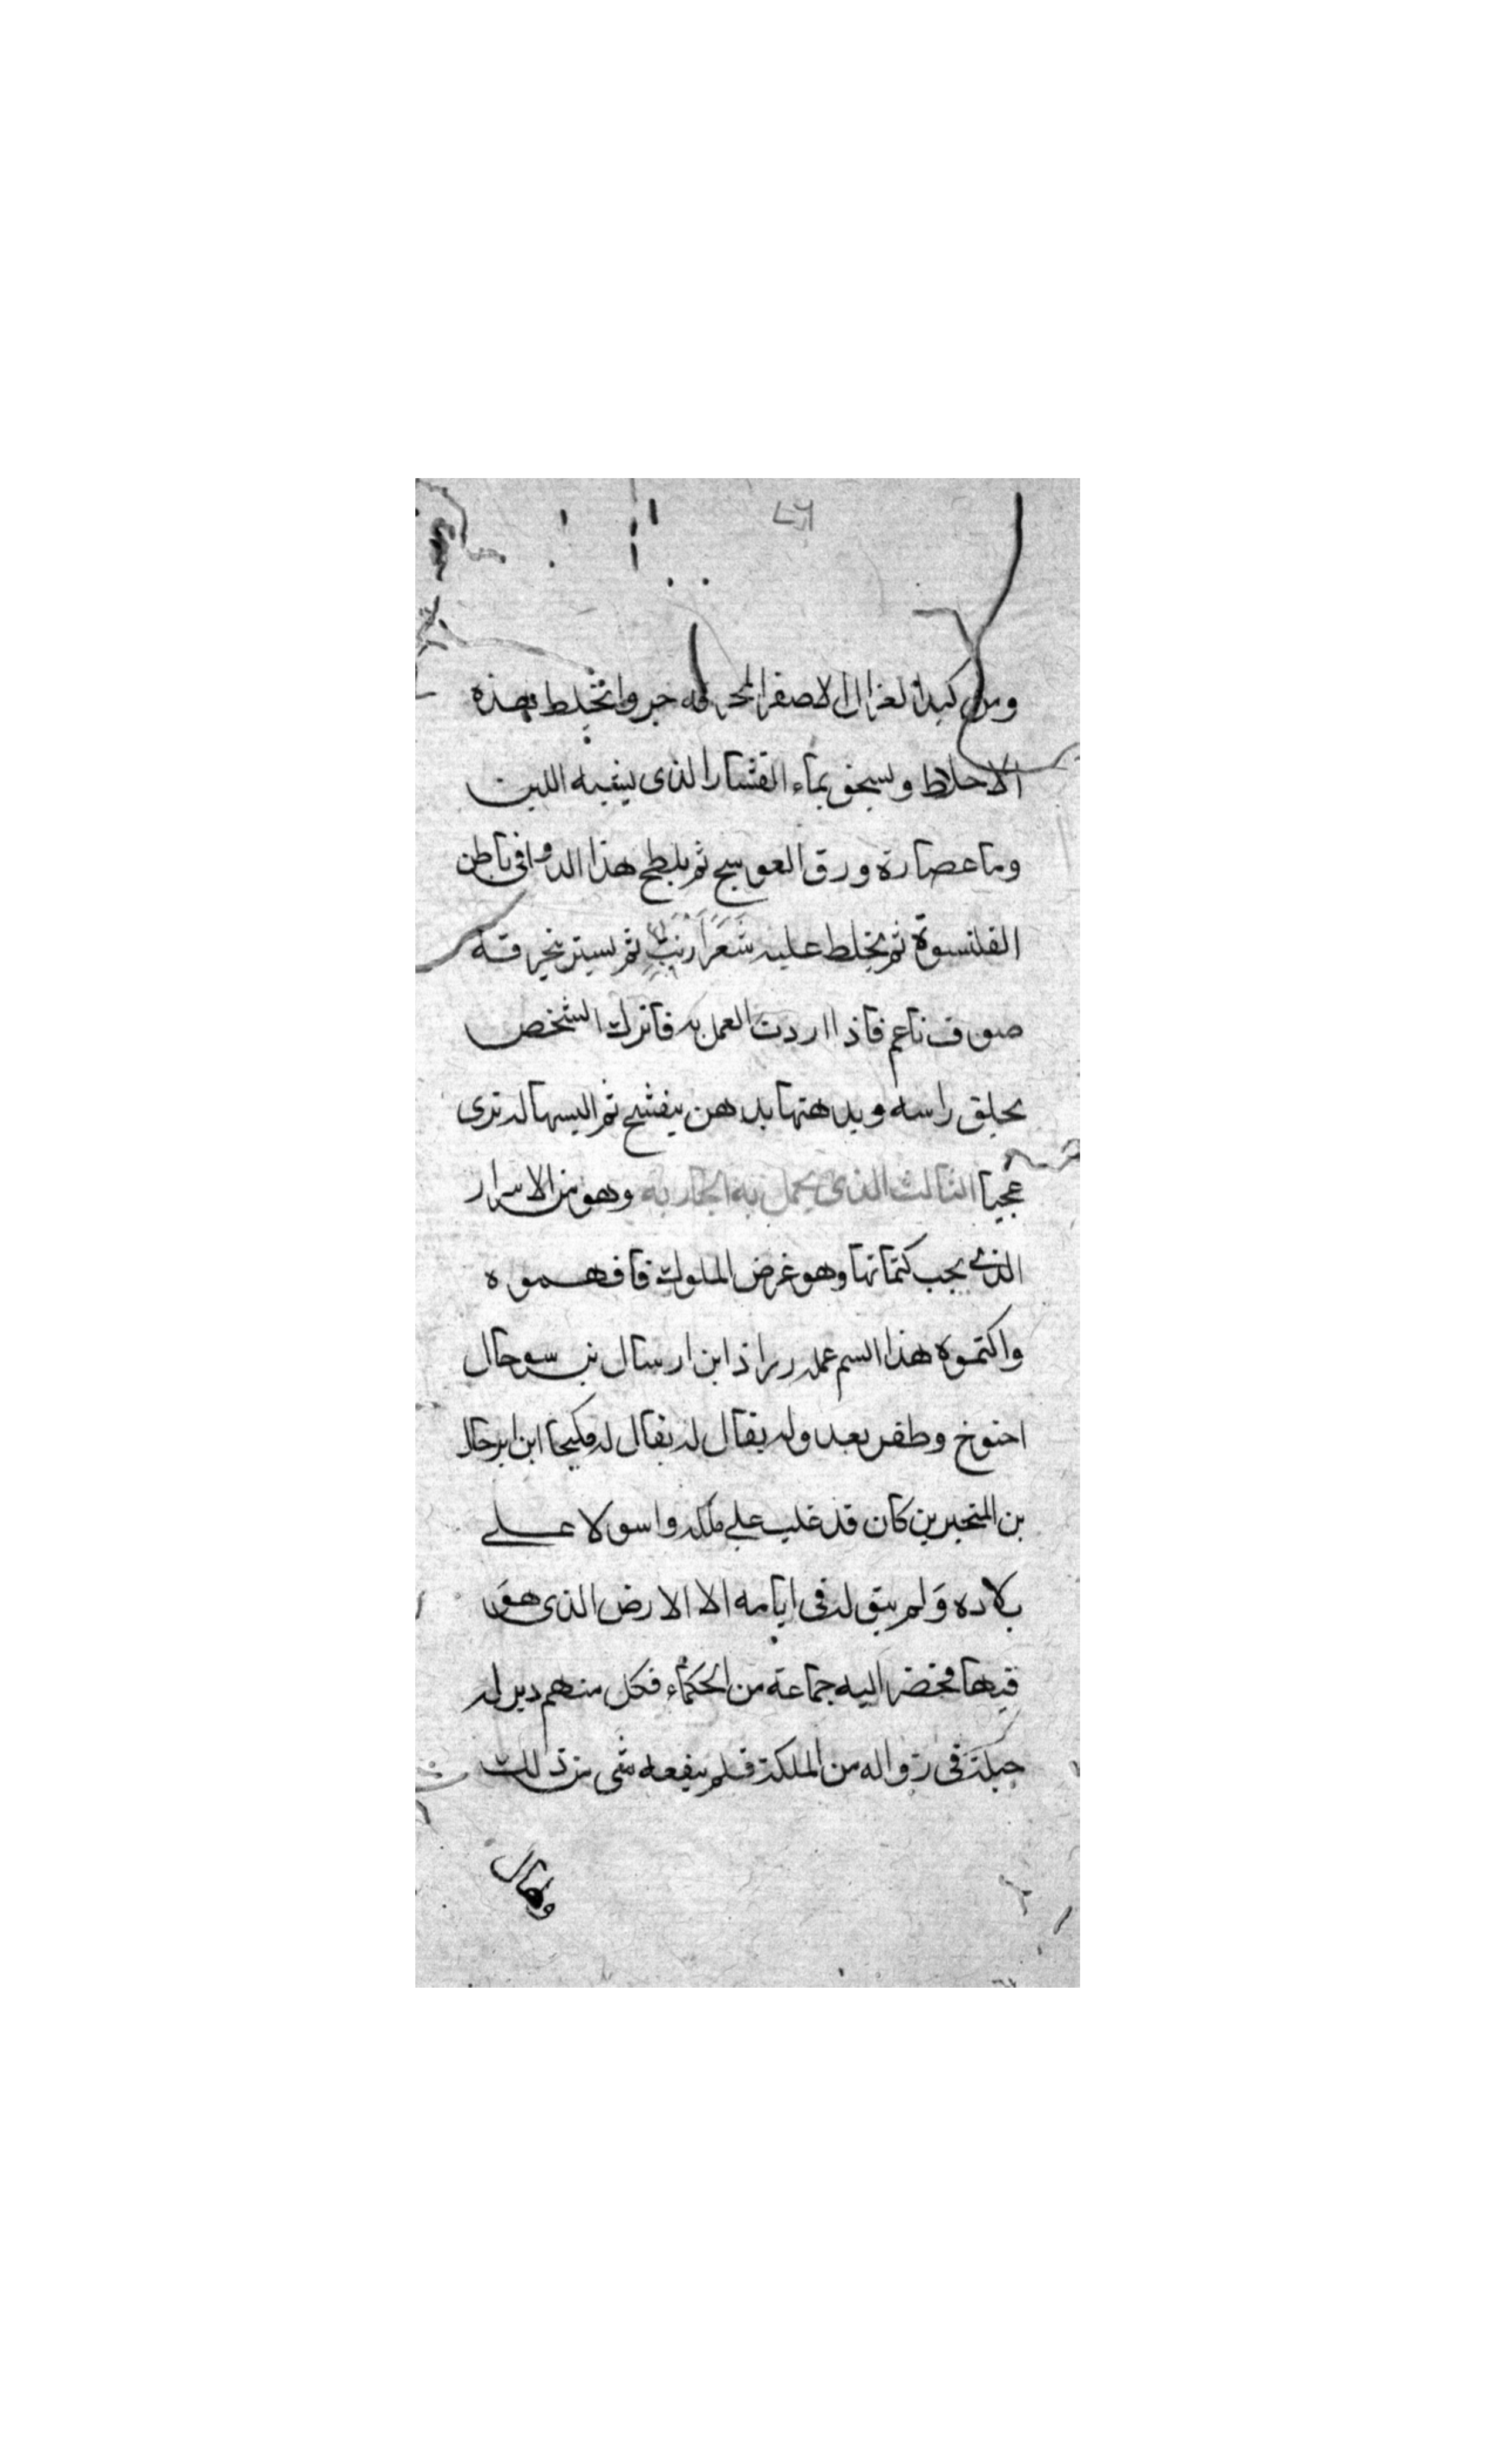 ومن كبد الغزال الاصفر المحرقه جزوا تخلط بهذه
الاخلاط ويسحق بماء القشار الذى ينفيه اللبن
وما عصارة ورق العوسج ثم يلطخ هذا الدوا فى باطن
القلنسوة ثم يخلط عليه شعر ارنب ثم يستر بخرقة
صوف ناعم فاذا اردت العمل به فاترك الشخص
يحلق راسه ويدهنها بدهن بنفسج ثم البسها له ترى
عجبا الثالث الذى يحمل به الجاريه وهو من الاسرار
الذى يجب كتمانها وهو غرض الملوك فافهموه
واكتموه هذا السم عمله ابن ارسال بن سوحال
احنوخ وطفر بعدوله يقال له يقال له ابن ابرحال
بن المتجبرين كان قد غلب على ملكه واسولا على
بلاده ولم يبق له فى ايامه الا الارض الذى هو
فيها فحضر اليه جماعة من الحكماء فكل منهم دبر له
حيلة فى زواله من الملكة فلم ينفعه شى من ذلك
وقال